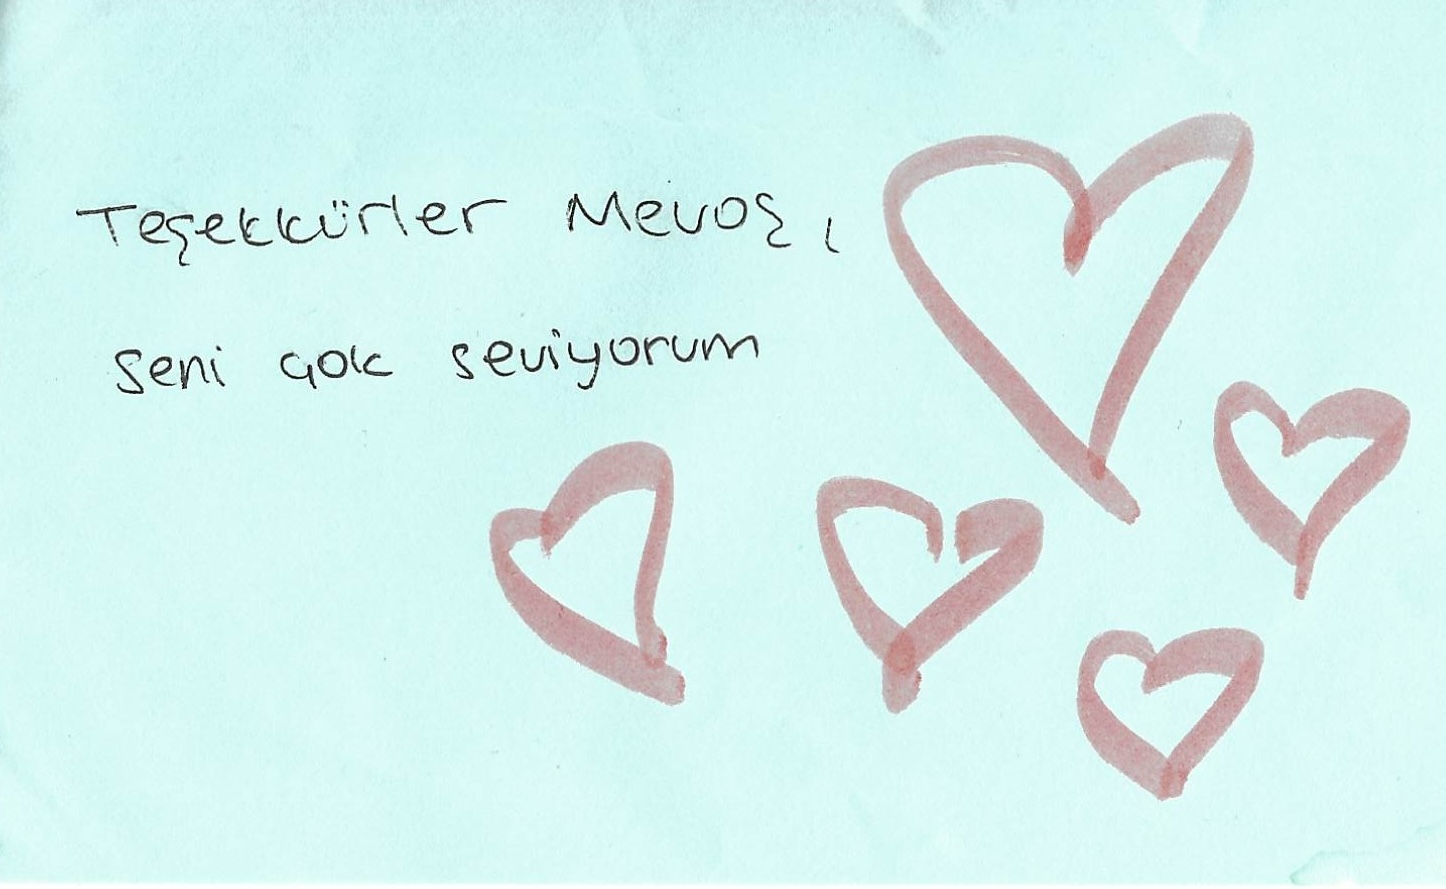 Teşekkürler Mevoş,
seni çok seviyorum